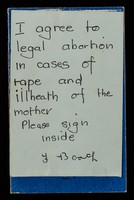 I agree to
legal abortion
in cases of
rape and
illheath of the
mother
Please sign
inside